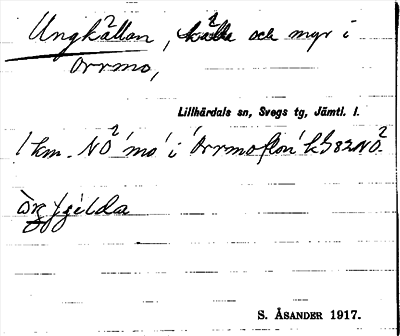 Ungkällan, källa och myr i
Orrmo,
Lillhärdals sn, Svegs tg, Jämtl. l.
1 km. NO mo i Orrmoflon
S. ÅSANDER 1917.